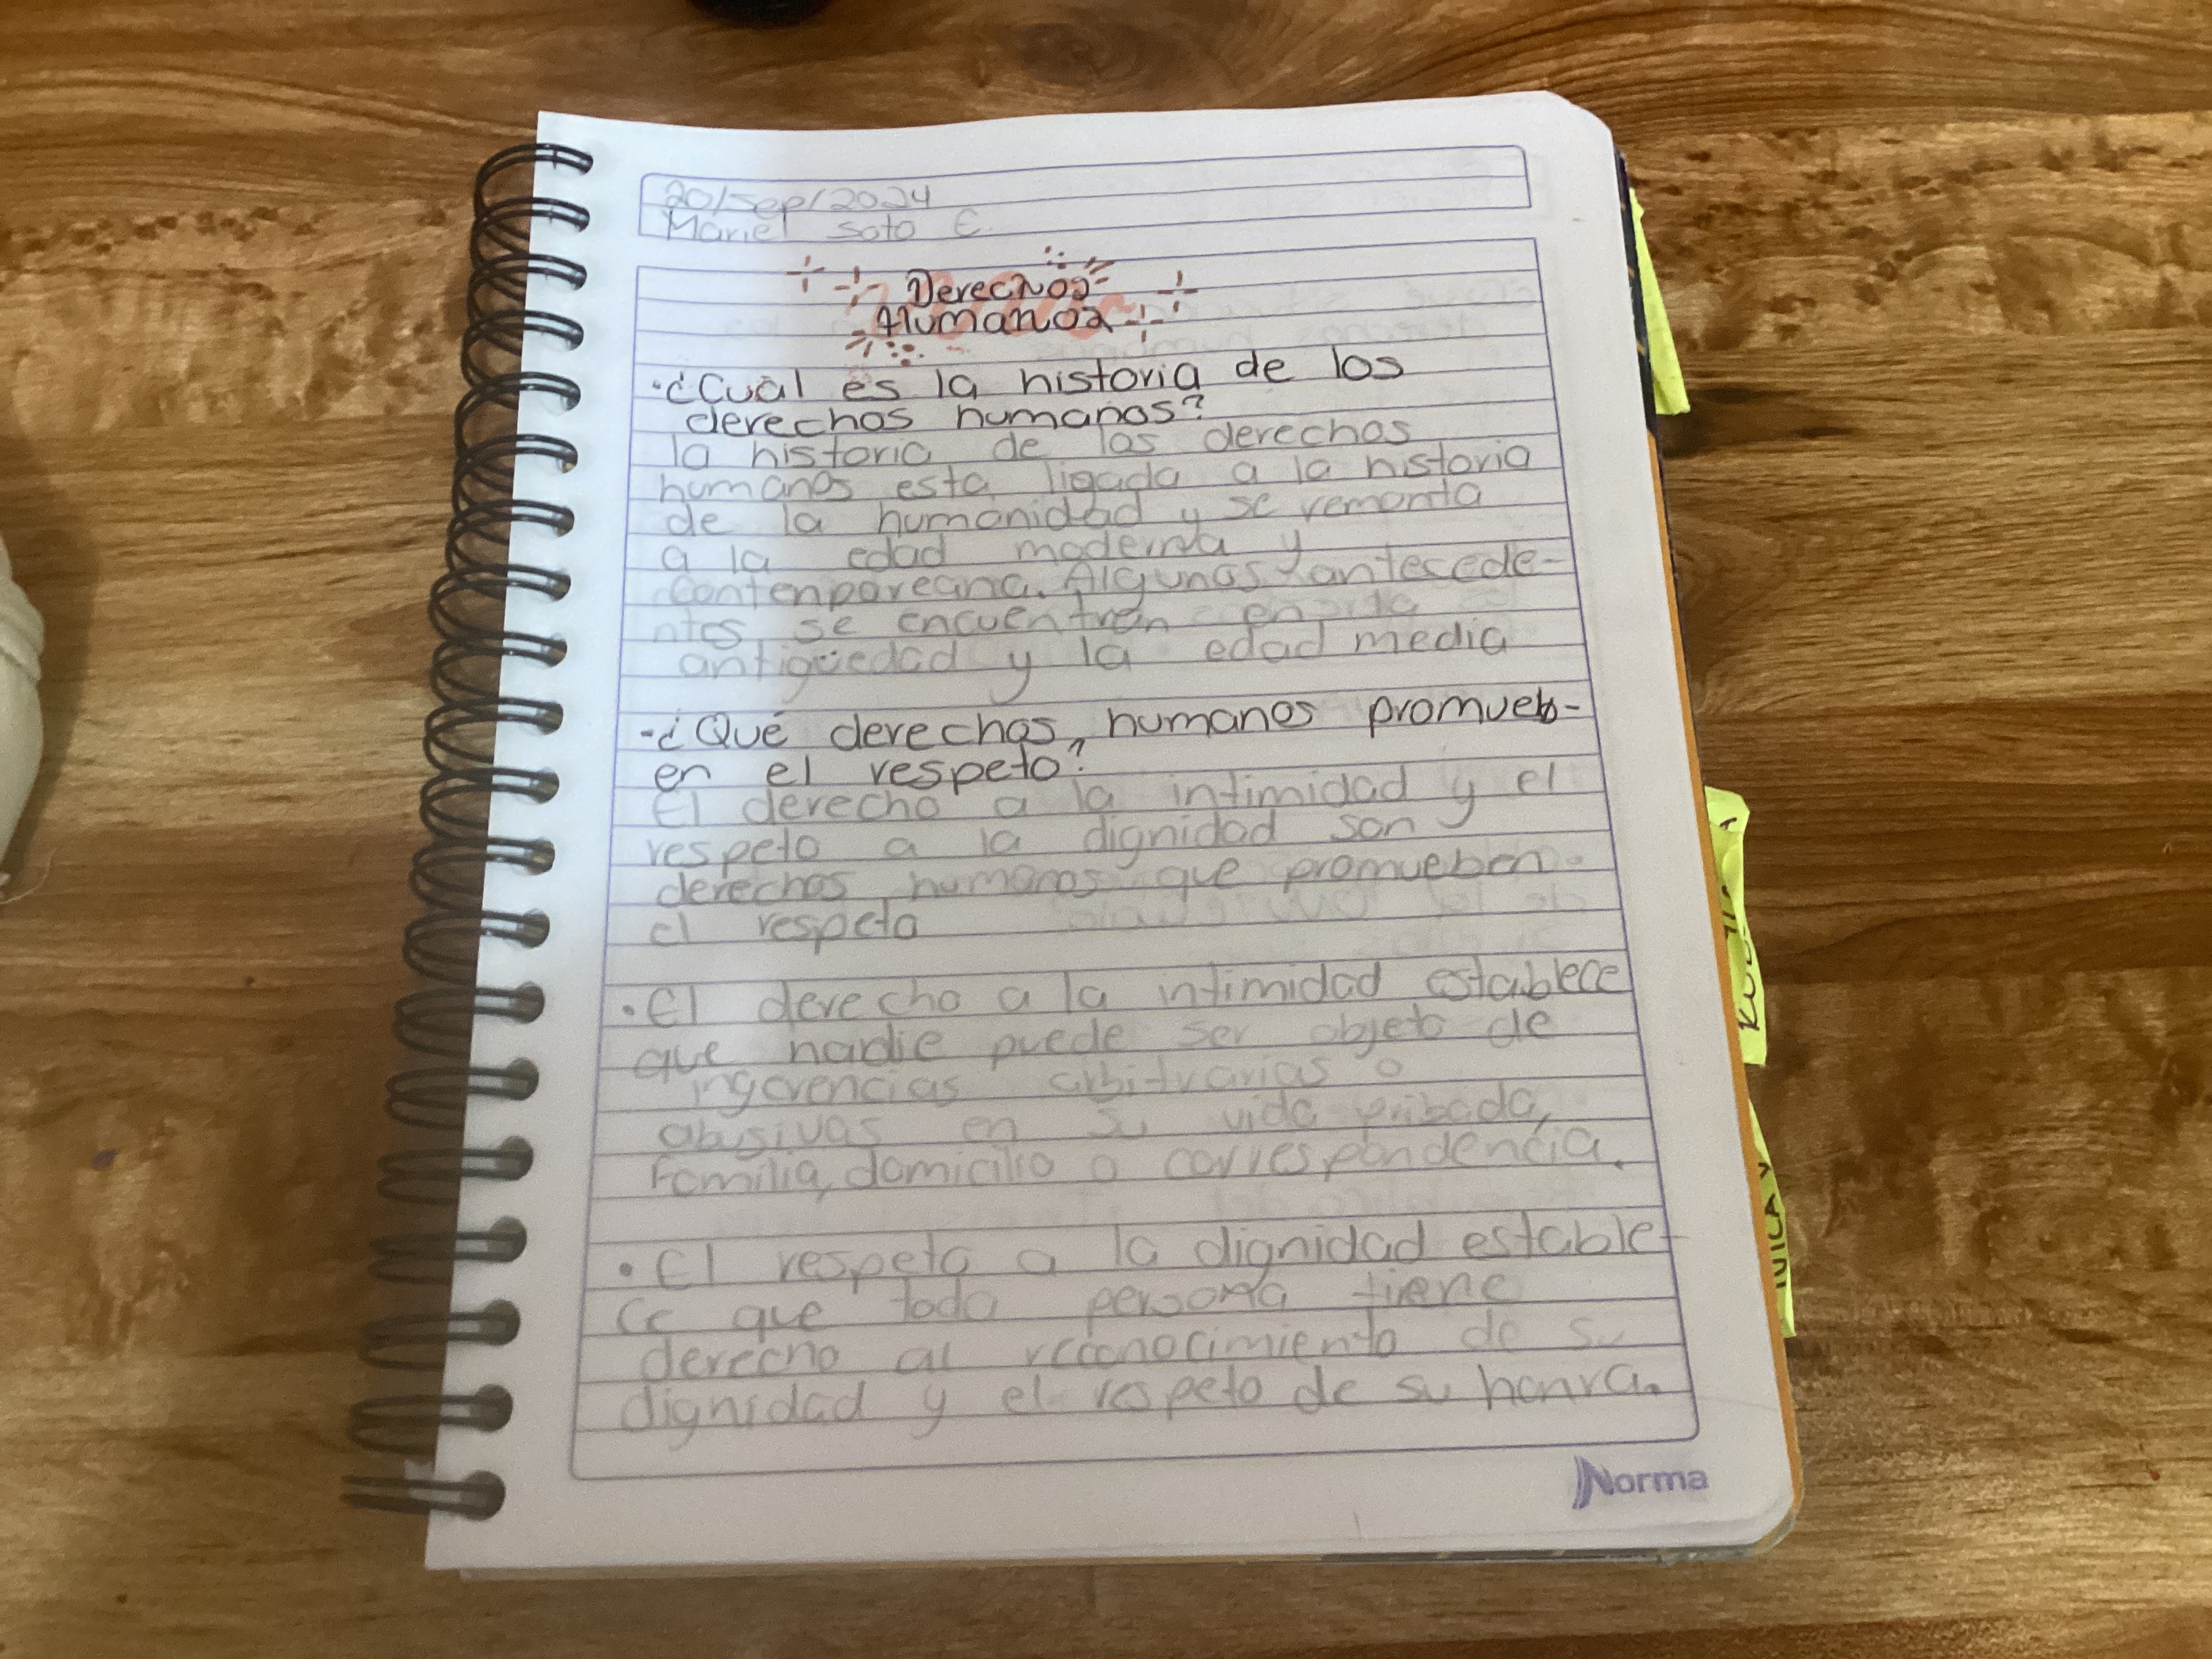 20/sep/2024
Mariel Soto E.
Derechos
Humanos
·¿Cuál es la historia de los
derechos humanos?
la historia de los derechos
humanos esta ligada a la historia
de la humanidad y se remonta
a la edad moderna y
Contenporeana. Algunos antecede-
ntes se encuentran en la
antigüedad y la edad media
-¿Qué derechos humanos promueb-
en el respeto?
El derecho a la intimidad y el
respeto a la dignidad son
derechos humanos que promueben
el respeto
·El derecho a la intimidad establece
que nadie puede ser objeto de
ingerencias arbitrarias o
abusivas en su vida pribada,
familia, domicilio o correspondencia.
·El respeto a la dignidad estable-
ce que toda persona tiene
derecho al reconocimiento de su
dignidad y el respeto de su honra.
Norma